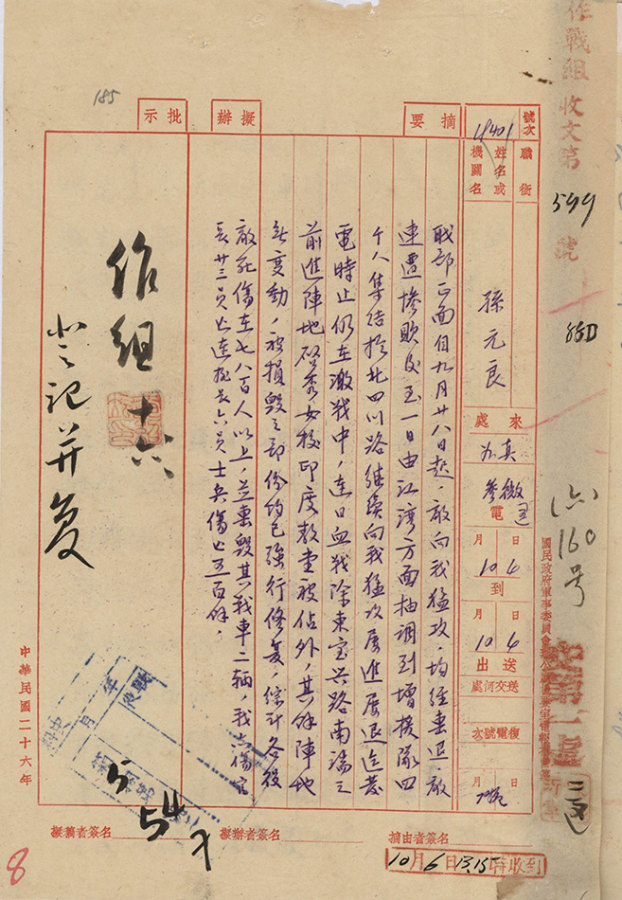 作戰組收文第599號
號次
18401
職銜
姓名或機關名
孫元良
來處
蘇真
電
10月6日
到
10月6日
送出
送交何處
復電號次
月 日
摘要
職部正面自九月廿八日起，敵向我猛攻，均經擊退，敵
連遭慘敗後，至一日由江灣方面抽調到增援隊四
千人集結於北四川路，繼續向我猛攻，屢進屢退，迄發
電時止仍在激戰中，連日血戰除東寶興路南端之
前進陣地啓秀女校印度教堂被佔外，其餘陣地
無變動，被損毀之部份均已強行修复，綜計各役
敵死傷在七八百人以上，並擊毀其戰車二輛，我亦傷官
長廿三員亡連排長六員士兵傷亡五百餘，
擬辦
批示
作組 十六
登記并复
中華民國二十六年
擬稿者簽名
擬辦者簽名
摘由者簽名
10月6日13.15時收到
160号
185
8
54